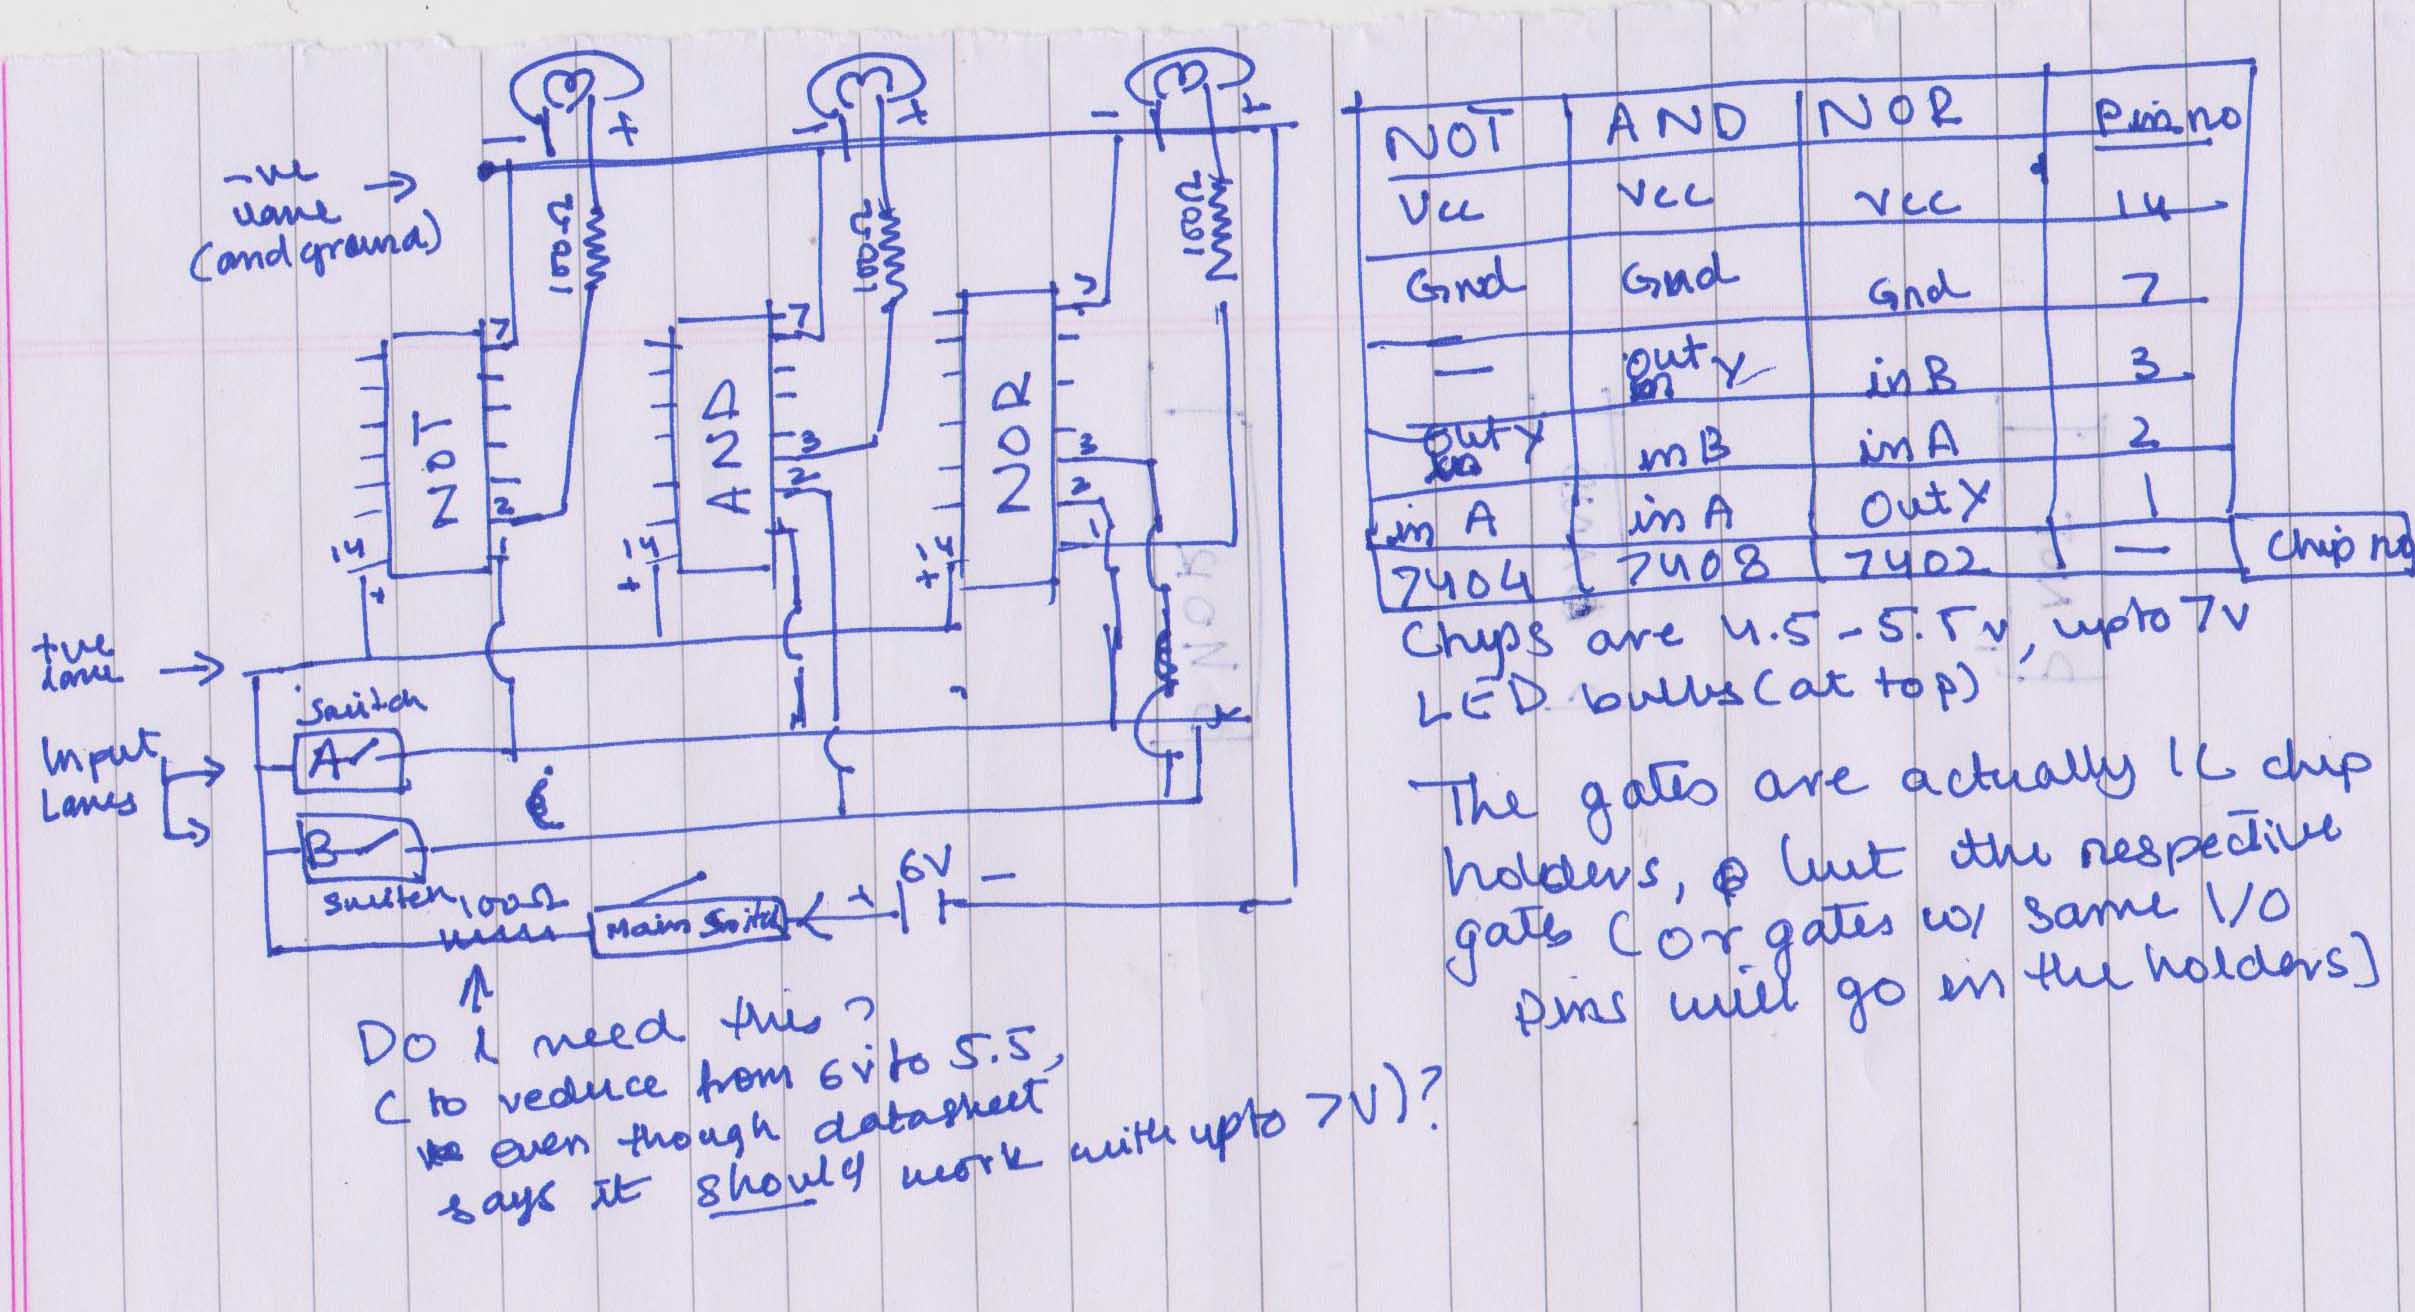 -ve
lane
(and ground)
- + - + - +
100Ω 100Ω 100Ω
7 7 7
NOT AND NOR
3 3
2 2 2
1 1
14 14 14
+ + +
+ve
lane
Switch
A
Input
Lanes
B
Switch
100Ω
Main Switch
+ 6V -
Do I need this?
(to reduce from 6v to 5.5,
even though datasheet
says it should work with upto 7V)?
NOT AND NOR Pin no
Vcc Vcc Vcc 14
Gnd Gnd Gnd 7
— out Y in B 3
out Y in B in A 2
in A in A Out Y 1
7404 7408 7402 — Chip no
Chips are 4.5-5.5v, upto 7v
LED bulbs (at top)
The gates are actually IC chip
holders, but the respective
gates (or gates w/ same I/O
pins will go in the holders)